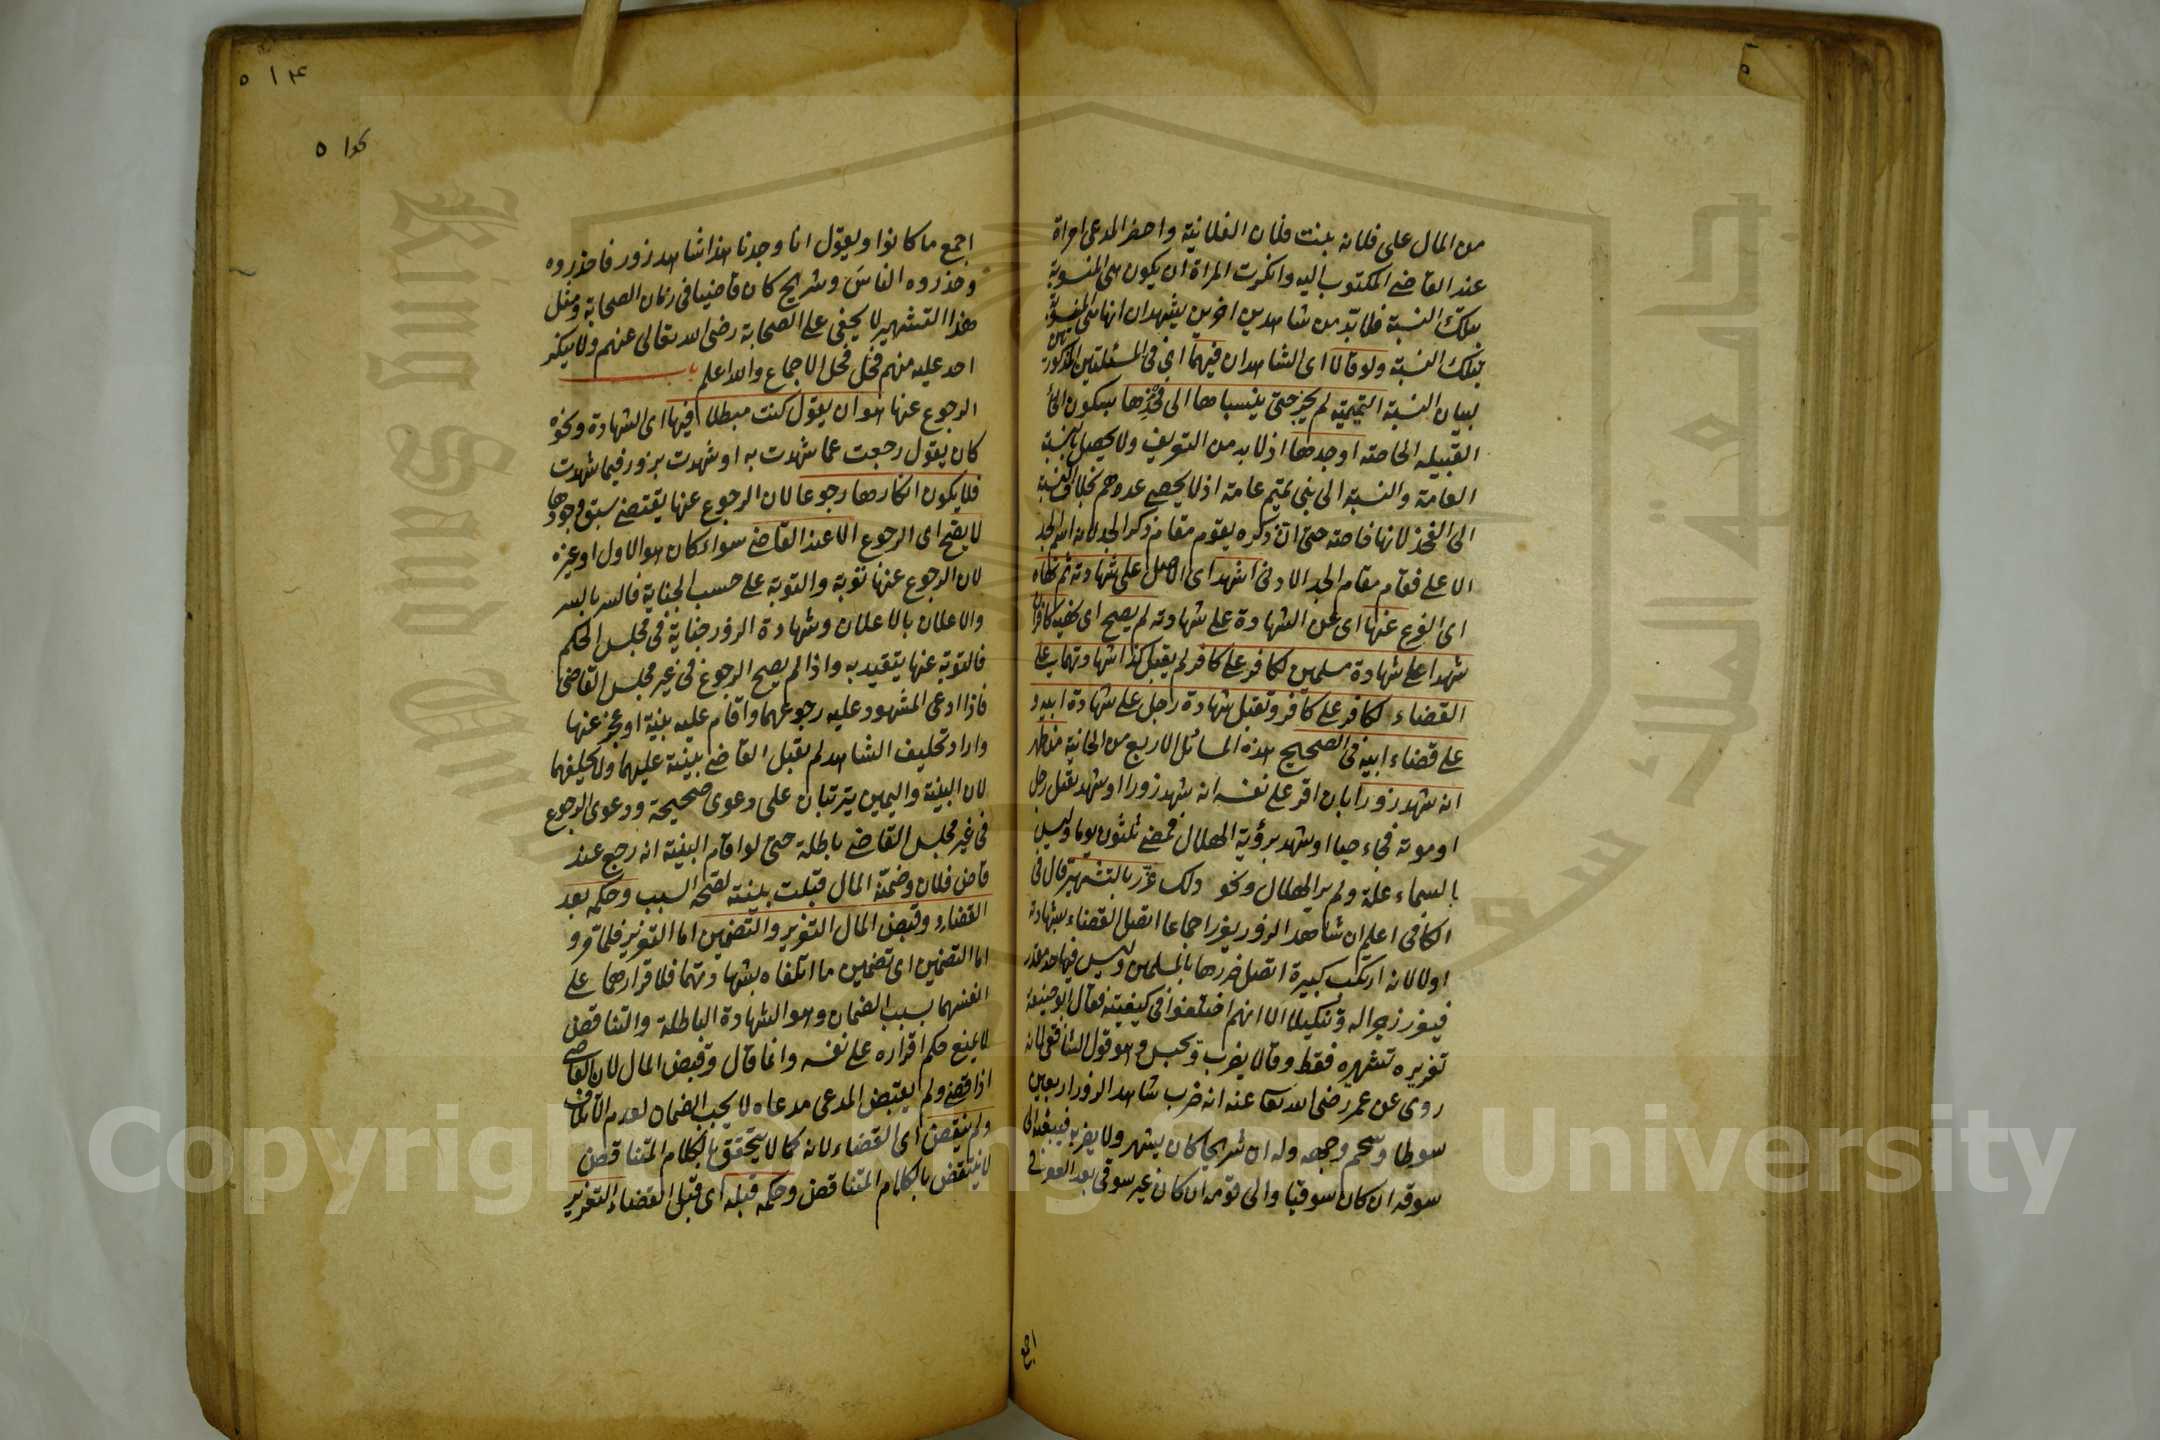 من المال على فلانة بنت فلان الفلانية واحضر المدعى امراة
عند القاضى المكتوب اليه وانكرت المراة ان يكون هى المنسوبة
بتلك النسبة فلا بد من شاهدين اخرين يشهدان انها هى المنسوبة
بتلك النسبة ولو قالا اى الشاهدان فيهما اى فى المسئلتين المذكورتين
لبيان النسبة التميمية لم يجز حتى ينسباها الى فخذها بسكون الخاء
القبيلة الخاصة او جدها اذ لا بد من التعريف ولا يحصل بالنسبة
العامة والنسبة الى بنى تميم عامة اذ لا يحصى عددهم بخلاف النسبة
الى الفخذ لانها خاصة حتى ان ذكره يقوم مقام ذكر الجد لانه اسم الجد
الاعلى فقام مقام الجد الادنى اشهد اى الاصل على شهادته ثم نهاه
اى الفرع عنها اى عن الشهادة على شهادته لم يصح اى نهيه كافران
شهدا على شهادة مسلمين لكافر على كافر لم يقبل كذا شهادتهما على
القضاء لكافر على كافر وتقبل شهادة رجل على شهادة ابيه و
على قضاء ابيه فى الصحيح هذه المسائل الاربع من الخانية من ظهر
انه شهد زورا بان اقر على نفسه انه شهد زورا او شهد بقتل رجل
او موته فجاء حيا او شهد برؤية الهلال فمضى ثلثون يوما وليس
بالسماء علة ولم ير الهلال ونحو ذلك عزر بالتشهير قال فى
الكافى اعلم ان شاهد الزور يعزر اجماعا اتصل القضاء بشهادته
اولا لانه ارتكب كبيرة اتصل ضررها بالمسلمين وليس فيها حد مقدر
فيعزر زجرا له وتنكيلا الا انهم اختلفوا فى كيفيته فقال ابو حنيفة
تعزيره تشهيره فقط وقالا يضرب ويحبس وهو قول الشافعى لانه
روى عن عمر رضى الله تعالى عنه انه ضرب شاهد الزور اربعين
سوطا وسخم وجهه وله ان شريحا كان يشهر ولا يضرب فيبعثه الى
سوقه ان كان سوقيا والى قومه ان كان غير سوقى بعد العصر
اجمع
٥١٤
٥
اجمع ما كانوا ويقول انا وجدنا هذا شاهد زور فاحذروه
وحذروه الناس وشريح كان قاضيا فى زمان الصحابة ومثل
هذا التشهير لا يخفى على الصحابة رضى الله تعالى عنهم ولا ينكر
احد عليه منهم فحل محل الاجماع والله اعلم باب
الرجوع عنها هو ان يقول كنت مبطلا فيها اى الشهادة ونحوه
كان يقول رجعت عما شهدت به او شهدت بزور فيما شهدت
فلا يكون انكارها رجوعا لان الرجوع عنها يقتضى سبق وجودها
لا يصح اى الرجوع الا عند القاضى سواء كان هو الاول او غيره
لان الرجوع عنها توبة والتوبة على حسب الجناية فالسر بالسر
والاعلان بالاعلان وشهادة الزور جناية فى مجلس الحكم
فالتوبة عنها يتقيد به واذا لم يصح الرجوع فى غير مجلس القاضى
فاذا ادعى المشهود عليه رجوعهما واقام عليه بينة او عجز عنها
واراد تحليف الشاهد لم يقبل القاضى بينته عليهما ولا يحلفهما
لان البينة واليمين يترتبان على دعوى صحيحة ودعوى الرجوع
فى غير مجلس القاضى باطلة حتى لو اقام البينة انه رجع عند
قاض فلان وضمنه المال قبلت بينته لصحة السبب وحكمه بعد
القضاء وقبض المال التعزير والتضمين اما التعزير فلما مر و
اما التضمين اى تضمين ما اتلفاه بشهادتهما فلاقرارهما على
انفسهما بسبب الضمان وهو الشهادة الباطلة والتناقض
لا يمنع حكم اقراره على نفسه وانما قال وقبض المال لان القاضى
اذا قضى ولم يقبض المدعى مدعاه لا يجب الضمان لعدم الاتلاف
ولم ينقض اى القضاء لانه كما لا يتحقق بالكلام المتناقض
لا ينتقض بالكلام المتناقض وحكمه قبله اى قبل القضاء التعزير
Copyright © King Saud University
King Saud University
جامعة الملك سعود